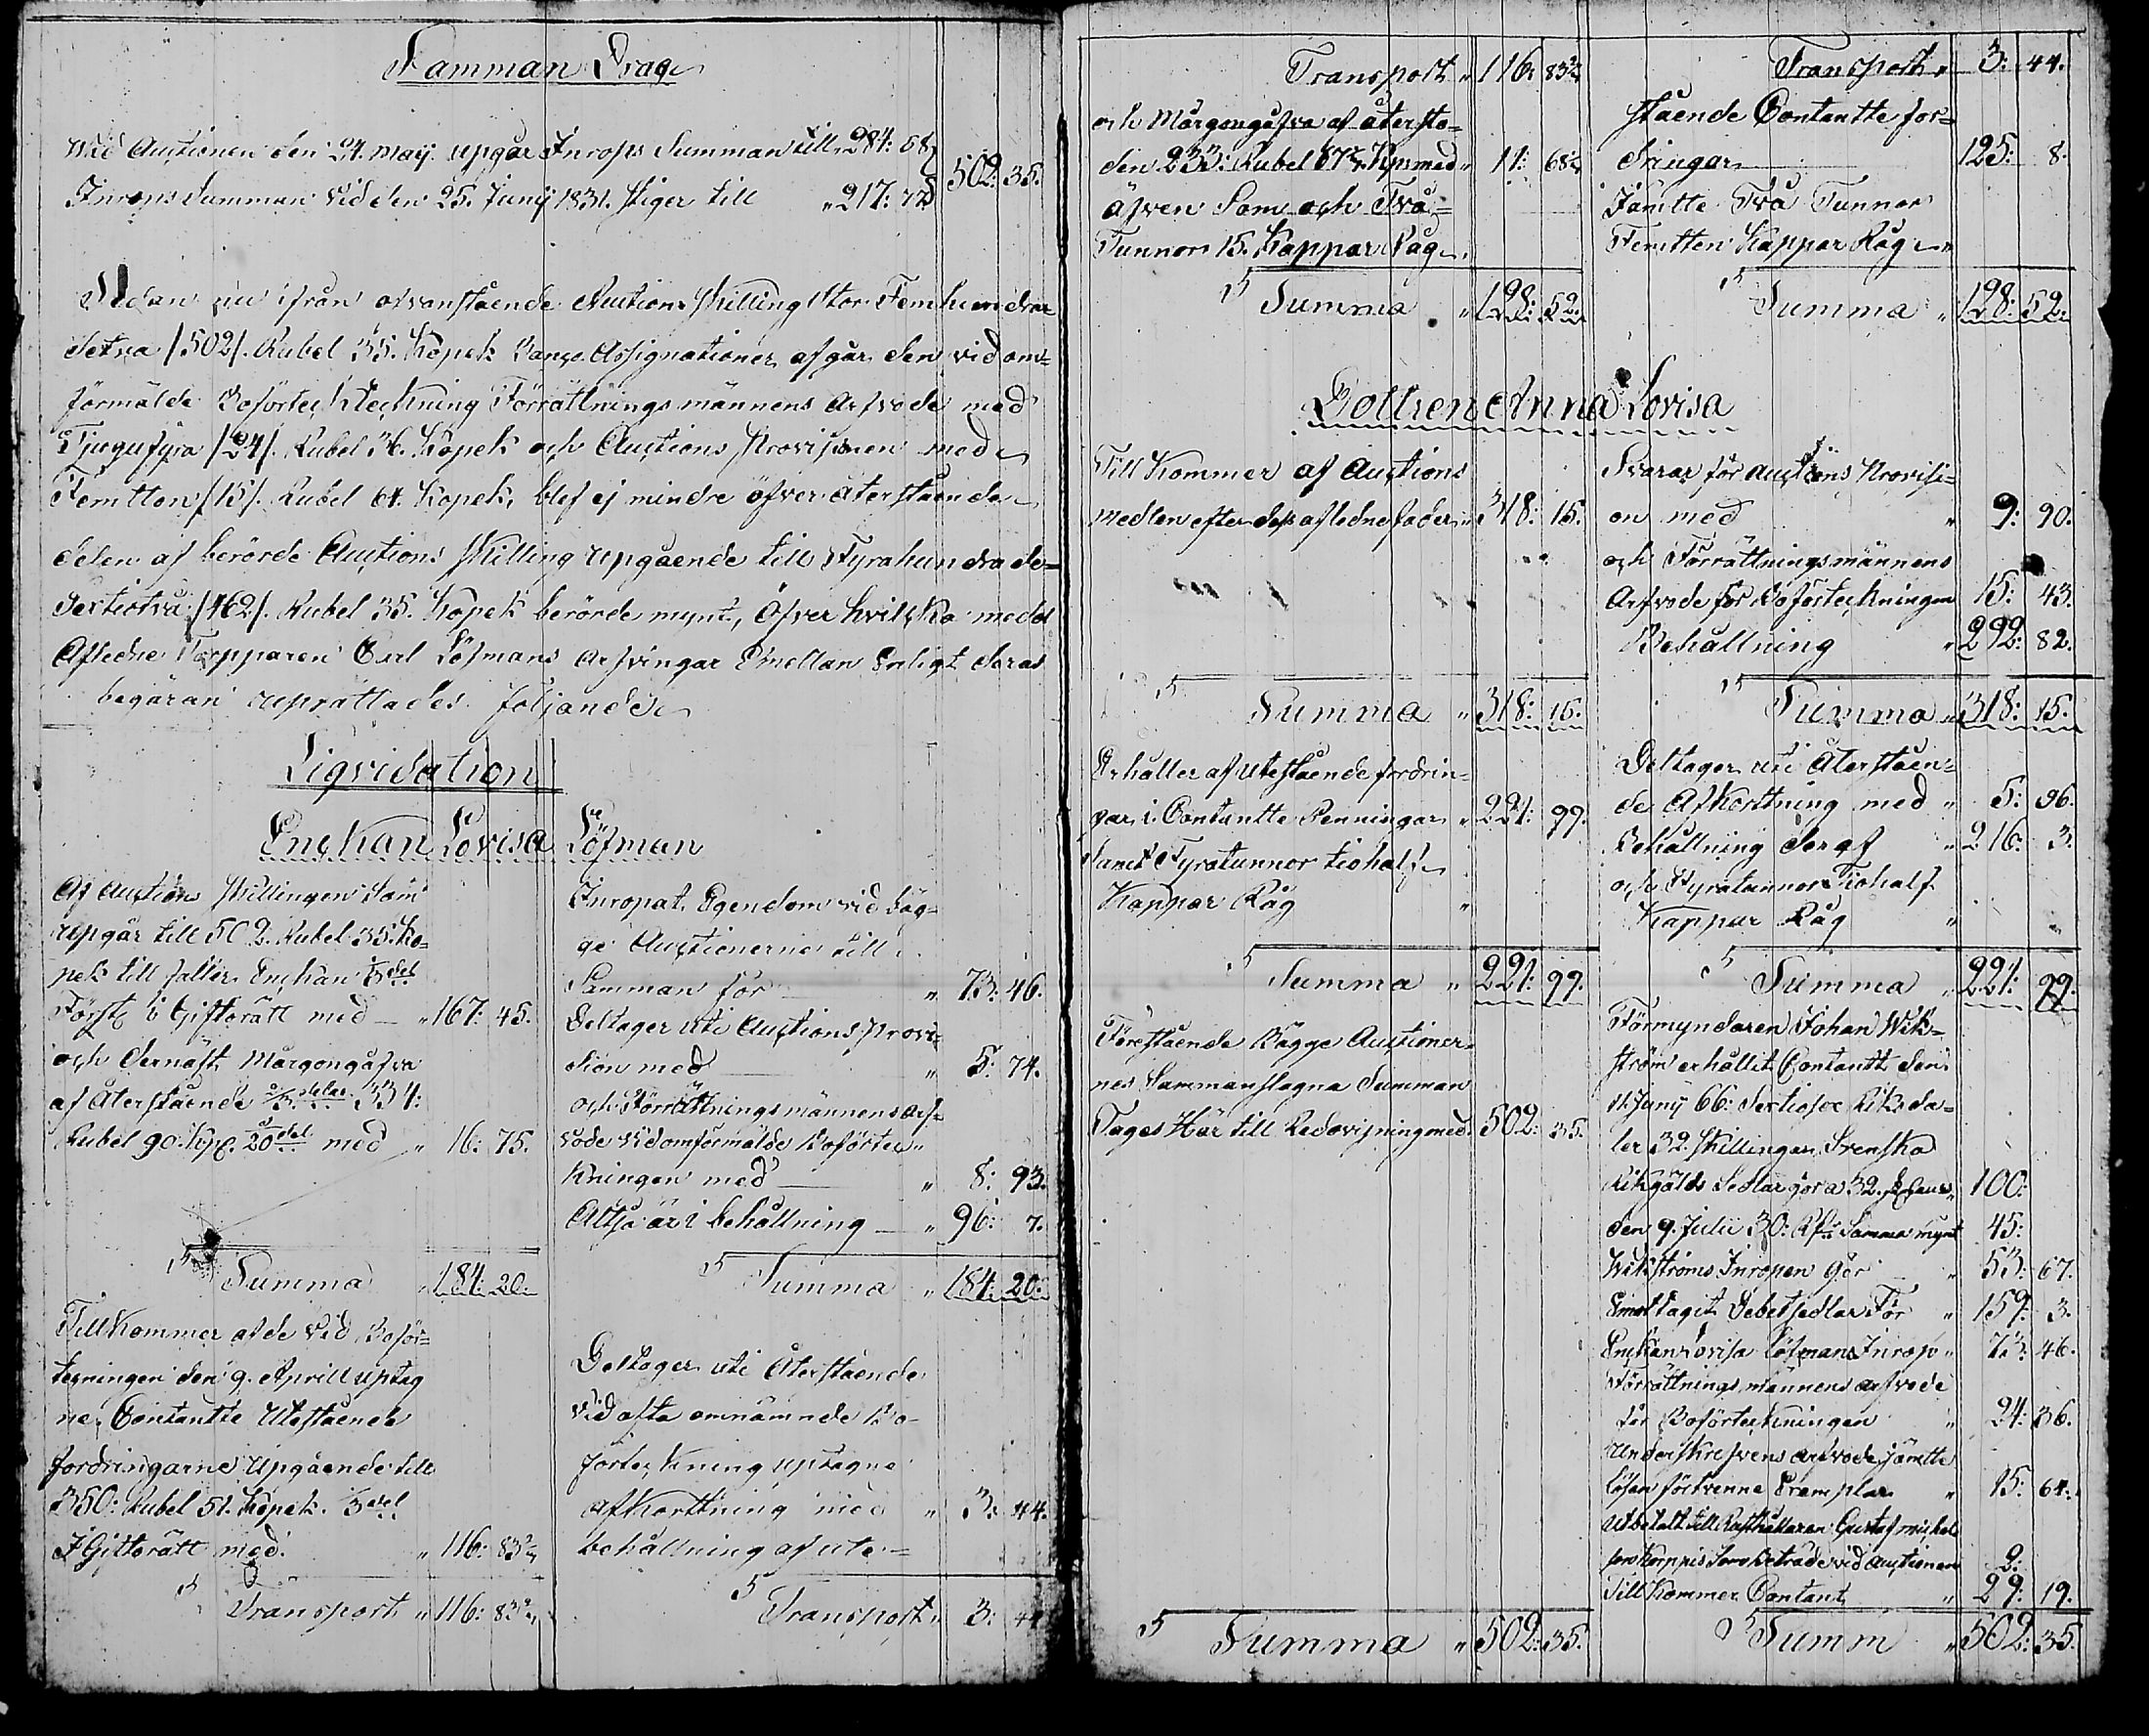 Samman Drag
Wid Auctionen den 24. Maij upgår Inrops Summan till 284: 58
Inrops Summan vid den 25. Junij 1831. stiger till " 217: 77
502: 35.
Sedan nu ifrån ofvanstående Auctions skilling stor Femhundra-
detva /502/. Rubel 35. Kopek Banco Assignationer afgår den vid om-
förmälde Boförteckning Förrättningsmännens Arfvode med
Tjugufyra /24/. Rubel 36. Kopek och Auctions Provisionen med
Femtton /15/. Rubel 64. Kopek, blef ej mindre öfver återstående
delen af berörde Auctions skilling upgående till Fyrahundrade-
sextiotvå /462/. Rubel 35. Kopek berörde mynt, Öfver hvilka medel
Afledne Torpparen Carl Löfmans Arfvingar Emellan Enligt deras
begäran upprättades följande
Liqvidation
Enckan Lovisa Löfman
Af Auctions skillingen som
upgår till 502. Rubel 35. Ko-
pek till faller Enckan 1/3 del
Först i Giftorätt med " 167: 45.
och dernäst Morgongåfva
af återstående 2/3 delar 334:
Rubel 90. Kop. 20 del med " 16: 75.
Summa " 184: 20.
Tillkommer af de vid Boför-
teckningen den 9. Aprill uptag
ne Contantte Utestående
fordringarne Upgående till
350: Rubel 51. Kopek. 3 del
I Giftorätt med " 116: 83 2/3
Transport " 116: 83 2/3
Inropat Egendom vid båg-
ge Auctionerne till
Samman för " 73: 46.
Deltager uti Auctions Provi-
sion med " 5: 74.
och Förrättningsmännens Arf-
vode vid omförmälde Boförtec-
kningen med " 8: 93.
Altså är i behållning " 96: 7.
Summa " 184: 20.
Deltager uti Återstående
vid ofta omnämnde Bo-
förteckning uptagne
afkorttning med " 3: 44.
behållning af ute-
Transport " 3: 44
Transport " 116: 83 2/3
och Morgongåfva af återsto-
den 233: Rubel 67 Kop med " 11: 68
äfven Som och Två
Tunnor 15. Kappar Råg.
Summa " 128: 52.
Transport " 3: 44.
stående Contantte for-
dringar 125: 8.
Jämtte Två Tunnor
Femtton Kappar Råg "
Summa " 128: 52.
Dottren Anna Lovisa
Till Kommer af Auctions
medlen efter dess afledne fader " 318: 15.
Summa " 318: 15.
Erhåller af utestående fordrin-
gar i Contantte Penningar " 221: 99.
samt Fyratunnor tiohalf
Kappar Råg "
Summa " 221: 99.
Förestående Bägge Auctioner-
nes Sammanslagna Summan
Tages Här till Redovisning med " 502: 35.
Summa " 502: 35.
Svarar för Auctions Provisi-
on med " 9: 90.
och Förrättningsmännens
Arfvode för Boförteckningen 15: 43.
Behållning " 292: 82.
Summa " 318: 15.
Deltager uti Återståen-
de Afkorttning med " 5: 96.
Behållning deraf " 216: 3.
och Fyratunnor Tiohalf
Kappar Råg "
Summa " 221: 99.
Förmyndaren Johan Wik-
ström erhållit Contantt den
11 Junij 66: Sextiosex Riksda-
ler 32. skillingar Svenska
Riksgälds Sedlar göra 100:
den 9. Julii 30: Rd. Samma mynt 45:
Wikströms Inropen Gör " 53: 67.
Emottagit Debetsedlar För " 159: 3.
Enckan Lovisa Löfmans Inrop " 73: 46.
Förrättningsmännens arfvode
för Boförteckningen " 24: 36.
Underskrefvens arfvode jämtte
lösen för tvenne Exemplar " 15: 64.
Utbetalt till Gustaf
vid Auctionen 2:
Till Kommer Contant " 29: 19.
Summ " 502: 35.